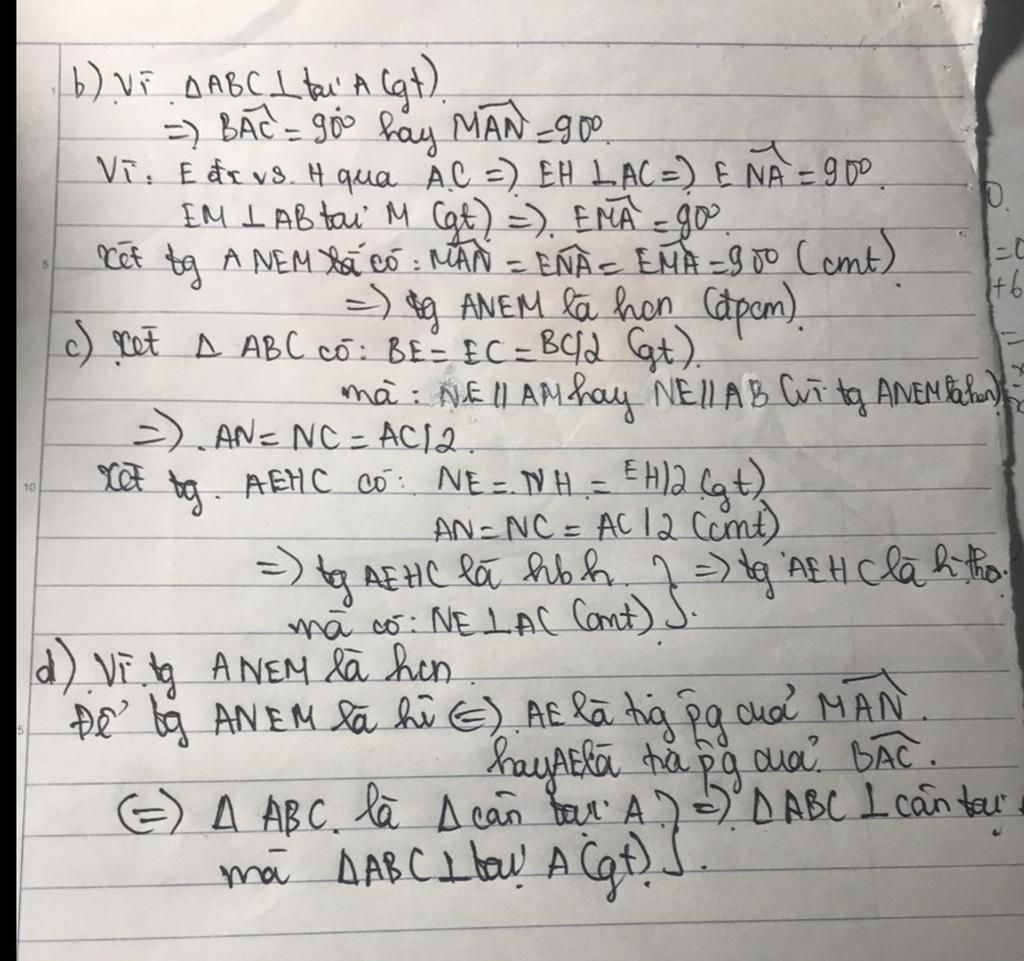 b) Vì ΔABC ⊥ tại A (gt)
=> BAC = 90° hay MAN = 90°
Vì E đx vs H qua AC => EH ⊥ AC => ENA = 90°
EM ⊥ AB tại M (gt) => EMA = 90°
Xét tg ANEM có: MAN = ENA = EMA = 90° (cmt)
=> tg ANEM là hcn (đpcm)
c) Xét Δ ABC có: BE = EC = BC/2 (gt)
mà: NE // AM hay NE // AB (vì tg ANEM là hcn)
=> AN = NC = AC/2
Xét tg AEHC có: NE = NH = EH/2 (gt)
AN = NC = AC/2 (cmt)
=> tg AEHC là hbh } => tg AEHC là h-tho.
mà có: NE ⊥ AC (cmt)
d) Vì tg ANEM là hcn
Để tg ANEM là hv <=> AE là tia pg của MAN.
hay AE là tia pg của BAC.
<=> Δ ABC là Δ cân tại A } => Δ ABC ⊥ cân tại
mà ΔABC ⊥ tại A (gt)
0.
=0
+6
=